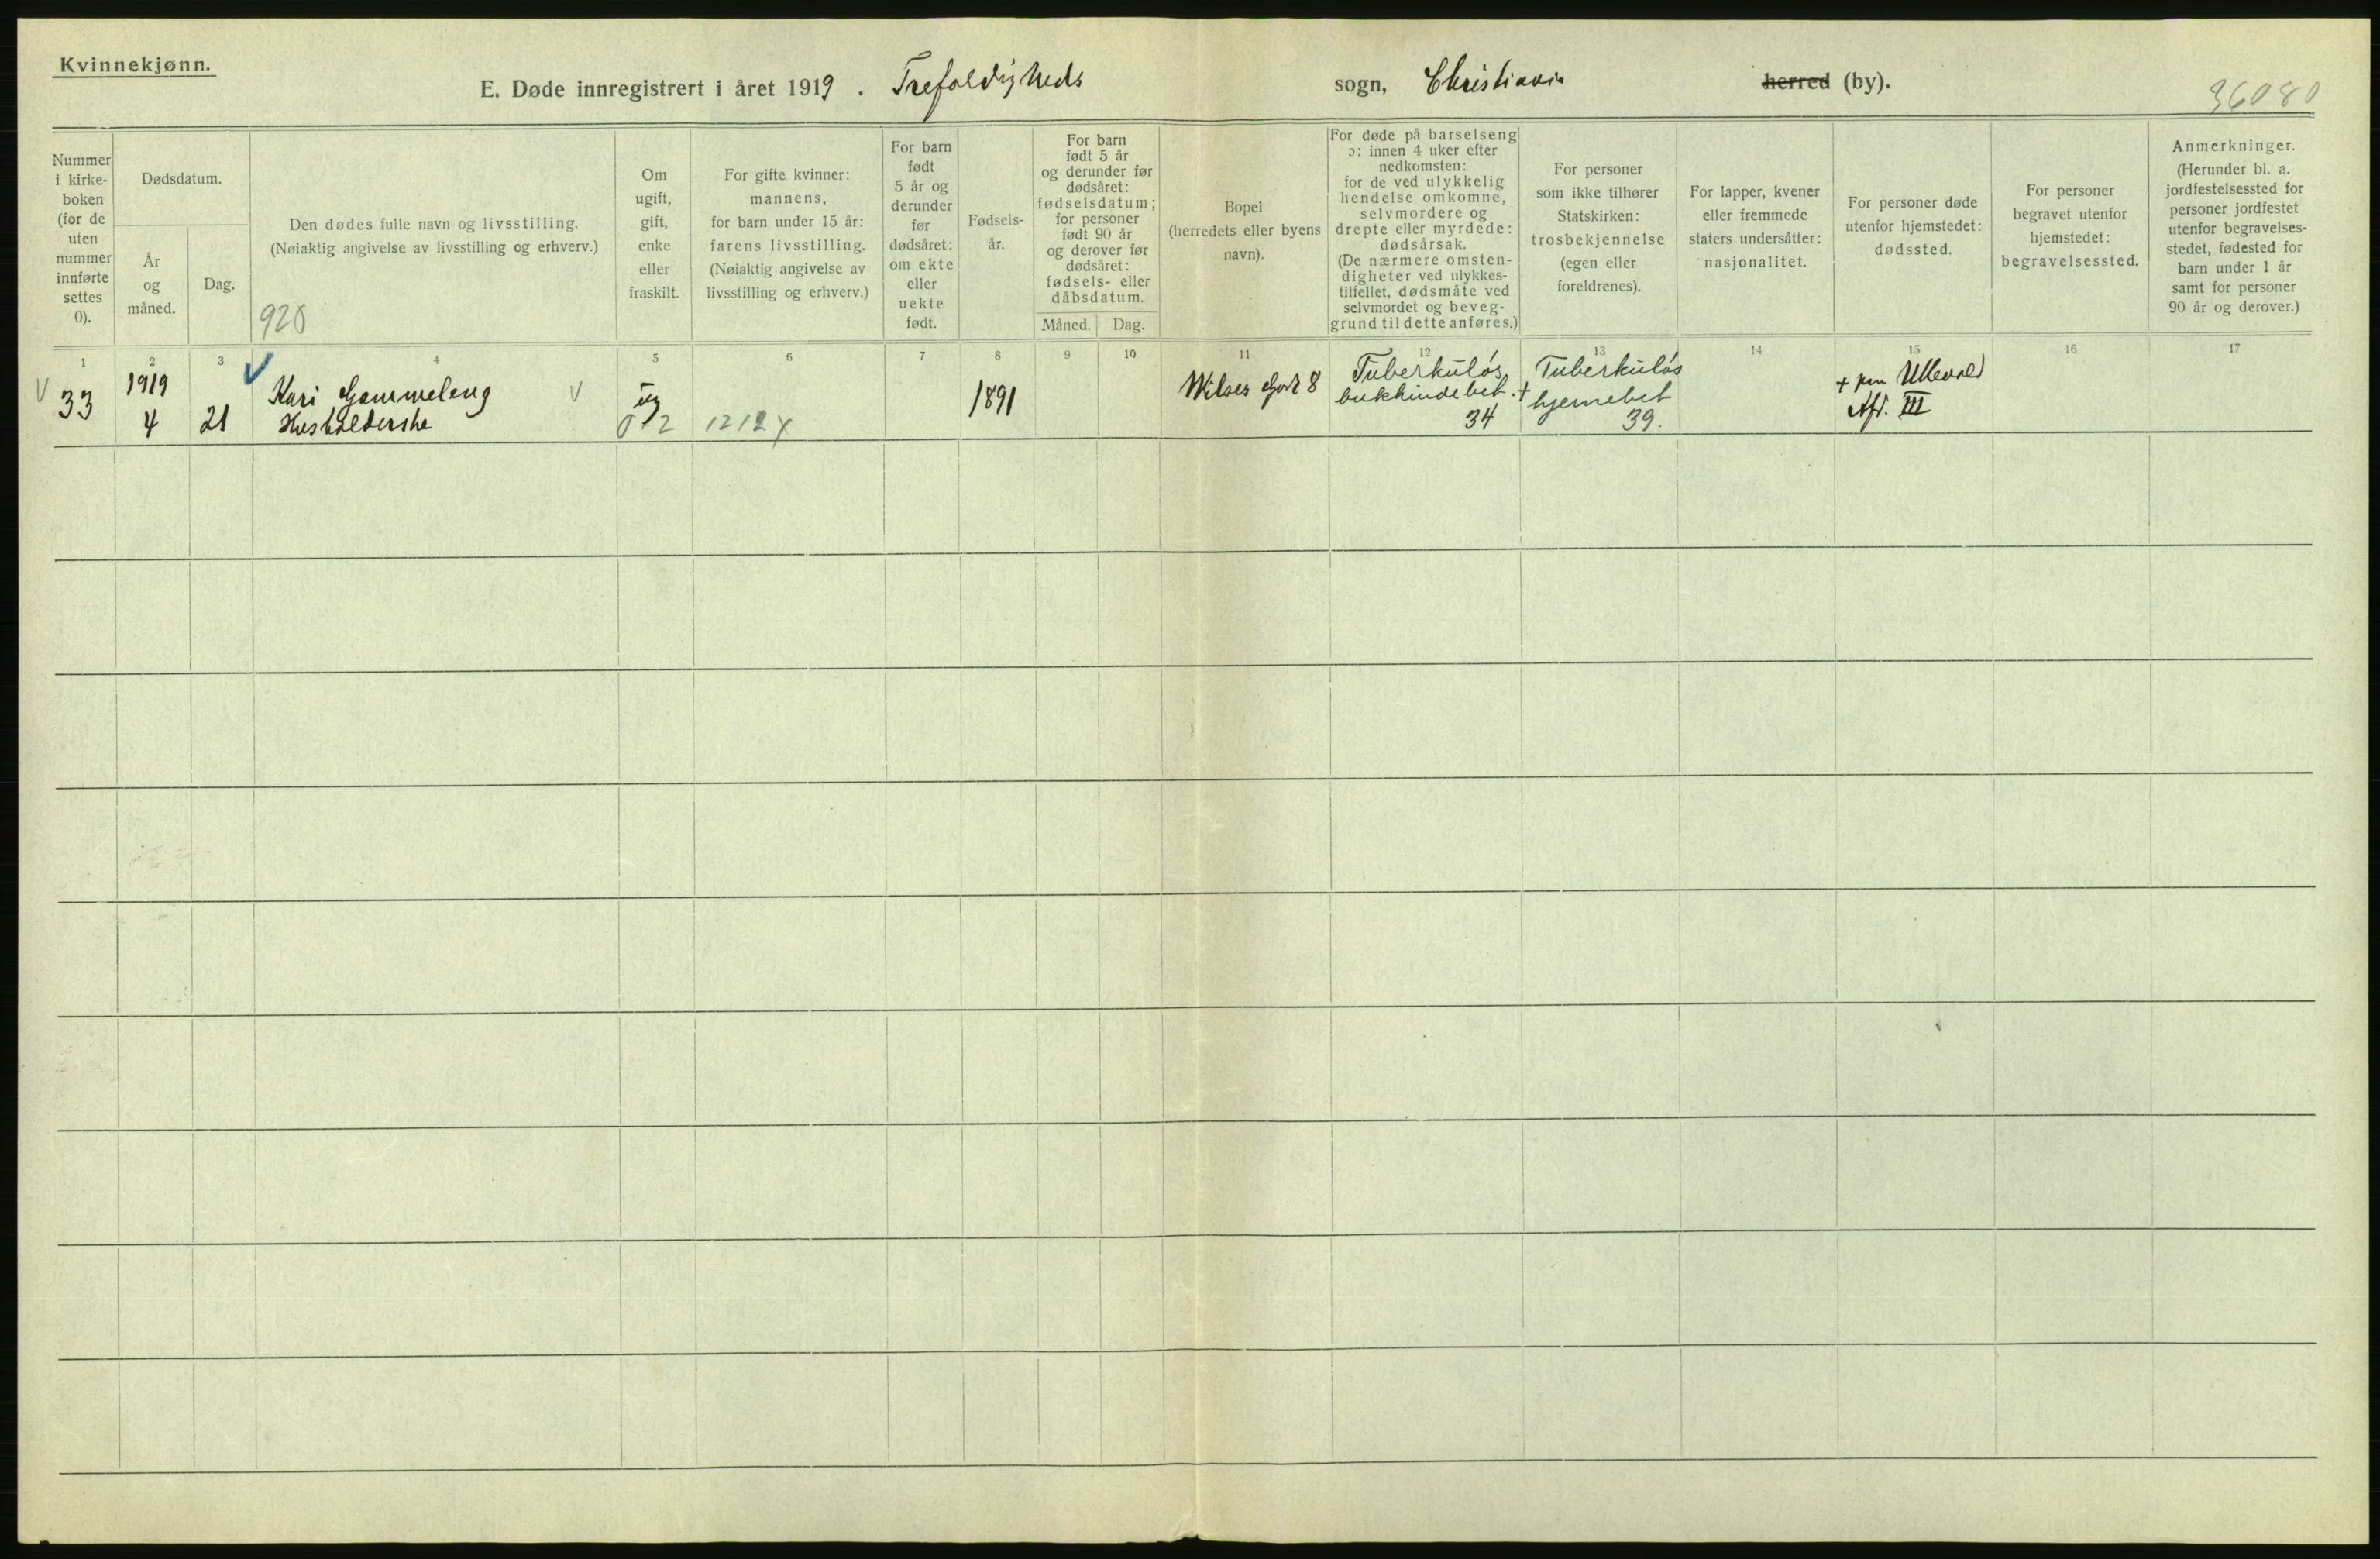 Kvinnekjønn.
E. Døde innregistrert i året 1919. Trefoldigheds sogn, Christiania herred (by).
36080
Nummer
i kirke-
boken
(for de
uten
nummer
innførte
settes
0).
Dødsdatum.
År
og
måned.
Dag.
Den dødes fulle navn og livsstilling.
(Nøiaktig angivelse av livsstilling og erhverv.)
920
Om
ugift,
gift,
enke
eller
fraskilt.
For gifte kvinner:
mannens,
for barn under 15 år:
farens livsstilling.
(Nøiaktig angivelse av
livsstilling og erhverv.)
For barn
født
5 år og
derunder
før
dødsåret:
om ekte
eller
uekte
født.
Fødsels-
år.
For barn
født 5 år
og derunder før
dødsåret:
fødselsdatum;
for personer
født 90 år
og derover før
dødsåret:
fødsels- eller
dåbsdatum.
Måned. Dag.
Bopel
(herredets eller byens
navn).
For døde på barselseng
ɔ: innen 4 uker efter
nedkomsten:
for de ved ulykkelig
hendelse omkomne,
selvmordere og
drepte eller myrdede:
dødsårsak.
(De nærmere omsten-
digheter ved ulykkes-
tilfellet, dødsmåte ved
selvmordet og beveg-
grund til dette anføres.)
For personer
som ikke tilhører
Statskirken:
trosbekjennelse
(egen eller
foreldrenes).
For lapper, kvener
eller fremmede
staters undersåtter:
nasjonalitet.
For personer døde
utenfor hjemstedet:
dødssted.
For personer
begravet utenfor
hjemstedet:
begravelsessted.
Anmerkninger.
(Herunder bl. a.
jordfestelsessted for
personer jordfestet
utenfor begravelses-
stedet, fødested for
barn under 1 år
samt for personer
90 år og derover.)
1 2 3 4 5 6 7 8 9 10 11 12 13 14 15 16 17
33
1919
4
21
Kari Gammeleng
Husholderske
ug
0-2
1212 X
1891
Wilses Gade 8
Tuberkuløs
bukhindebet. +
34
Tuberkuløs
hjernebet
39.
+ paa Ullevold
Afd. III